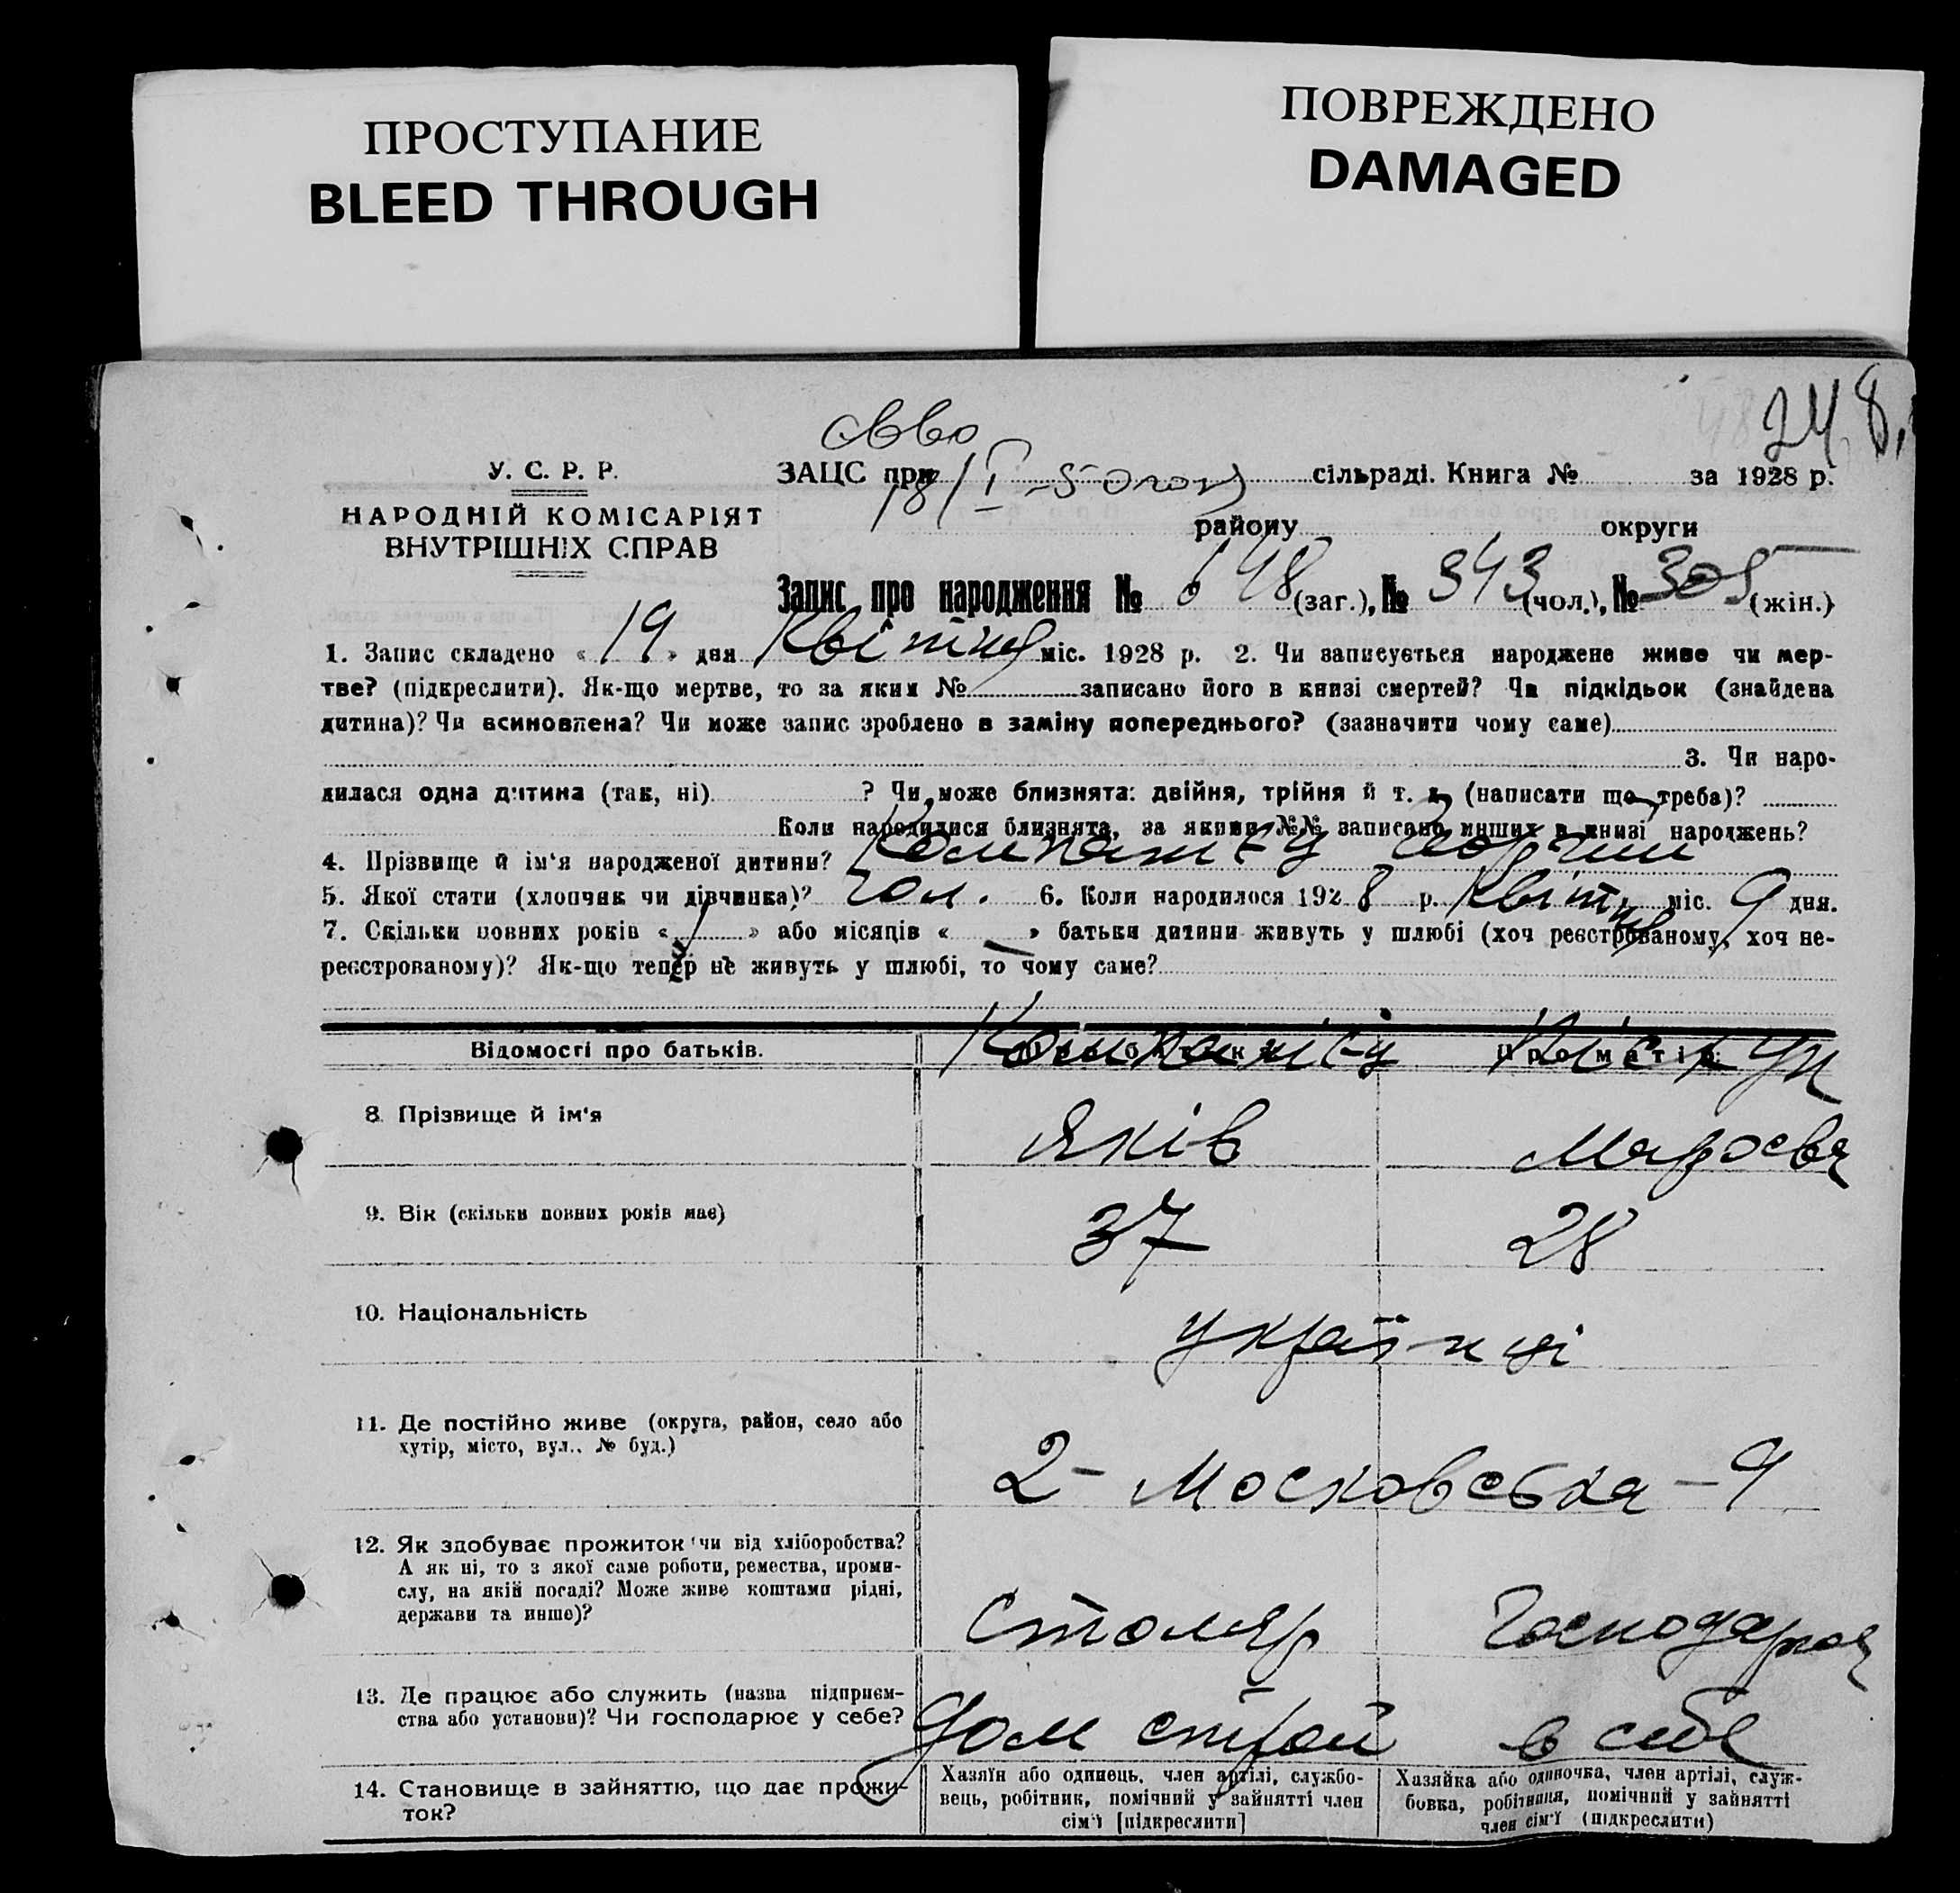 ПРОСТУПАНИЕ
BLEED THROUGH
ПОВРЕЖДЕНО
DAMAGED
24 8
У. С. Р. Р.
ЗАЦС при сільраді. Книга № за 1928 р.
НАРОДНІЙ КОМІСАРІЯТ
ВНУТРІШНІХ СПРАВ
району округи
Запис про народження № 648 (заг.), № 343 (чол.), № 305 (жін.)
1. Запис складено « 19 » дня Квітня міс. 1928 р. 2. Чи записується народжене живе чи мер-
тве? (підкреслити). Як-що мертве, то за яким № записано його в книзі смертей? Чи підкідьок (знайдена
дитина)? Чи всиновлена? Чи може запис зроблено в заміну попереднього? (зазначити чому саме)
3. Чи наро-
дилася одна дитина (так, ні) ? Чи може близнята: двійня, трійня й т. д. (написати що треба)?
Коли народилися близнята, за якими №№ записано инших в книзі народжень?
4. Прізвище й ім'я народженої дитини?
5. Якої стати (хлопчик чи дівчинка)? чол. 6. Коли народилося 1928 р. Квітня міс. 9 дня.
7. Скільки повних років « » або місяців « » батьки дитини живуть у шлюбі (хоч реєстрованому, хоч не-
реєстрованому)? Як-що тепер не живуть у шлюбі, то чому саме?
Відомості про батьків. Про батька Про матір
8. Прізвище й ім'я Яків
9. Вік (скільки повних років має) 37 28
10. Національність українці
11. Де постійно живе (округа, район, село або
хутір, місто, вул., № буд.)
2- Московська - 9
12. Як здобуває прожиток чи від хліборобства?
А як ні, то з якої саме роботи, ремества, проми-
слу, на якій посаді? Може живе коштами рідні,
держави та инше)?
Столяр Господарка
13. Де працює або служить (назва підприєм-
ства або установи)? Чи господарює у себе?
Дом строй в себе
14. Становище в зайняттю, що дає прожи-
ток?
Хазяїн або одинець, член артілі, службо-
вець, робітник, помічний у зайнятті член
сім'ї [підкреслити]
Хазяйка або одиночка, член артілі, служ-
бовка, робітниця, помічний у зайнятті
член сім'ї (підкреслити)